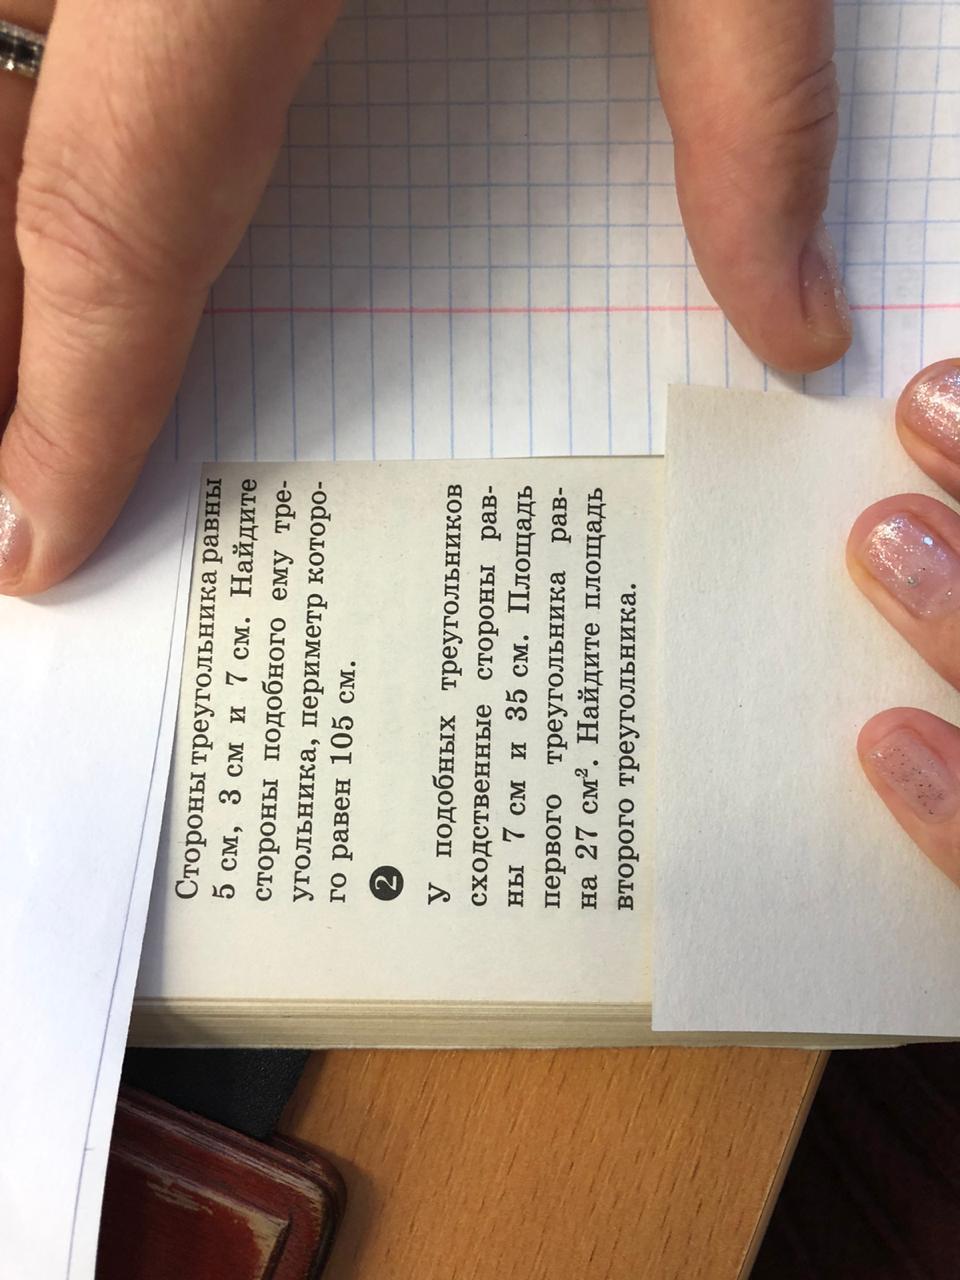 Стороны треугольника равны
5 см, 3 см и 7 см. Найдите
стороны подобного ему тре-
угольника, периметр которо-
го равен 105 см.
2
У подобных треугольников
сходственные стороны рав-
ны 7 см и 35 см. Площадь
первого треугольника рав-
на 27 см². Найдите площадь
второго треугольника.